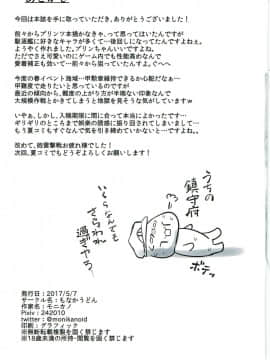 あとがき
今回は本誌を手に取っていただき、ありがとうございました!
前々からプリンツ本描かなきゃ、って思ってはいたんですが
駆逐艦に好きなキャラが多くて…後回しになってたんですが
ようやく作れました。プリンちゃん、いいですよね。
ただでさえ可愛いのにゲーム内でも性能高めなんで
愛着補正も働いて…前々から狙ってたんすよ。ぐへへ
今度の春イベント海域…甲勲章維持できるか心配だなぁ…
甲難度で走りたいと思っているんですが
最近の傾向から、難度の上がり方が半端ない印象なんで
大規模作戦とかきてしまうと地獄を見そうな気がしていますw
いやぁ、しかし、入稿期限に間に合って本当によかったです…
ギリギリのところまで娯楽の誘惑に振り回されてしまいまして…
もう夏コミもすぐなんで気を引き締めていかないと…ですよね。
改めて、砲雷撃戦お疲れ様でした!
次回、夏コミでもどうぞよろしくお願いします!
うちの
鎮守府
いくらなんでも
さらわれ
過ぎやろ
ボテッ
発行日:2017/5/7
サークル名:もなかうどん
作家名:モニカノ
Pixiv 242010
twitter:@monikanoid
印刷:グラフィック
※無断転載複製を固く禁じます
※18歳未満の所持・閲覧を固く禁じます